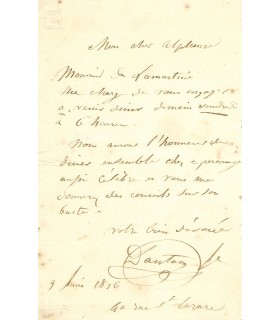 Mon cher Alphonse
Monsieur de Lamartine
me charge de vous engager
a venir diner demain vendredi
à 6 heures
Nous aurons l'honneur de
diner ensemble chez ce personnage
aussi célèbre et vous me
donnerez des conseils sur son
buste.
votre bien dévoué
Dantan Je
9 Juin 1836
rue St Lazare